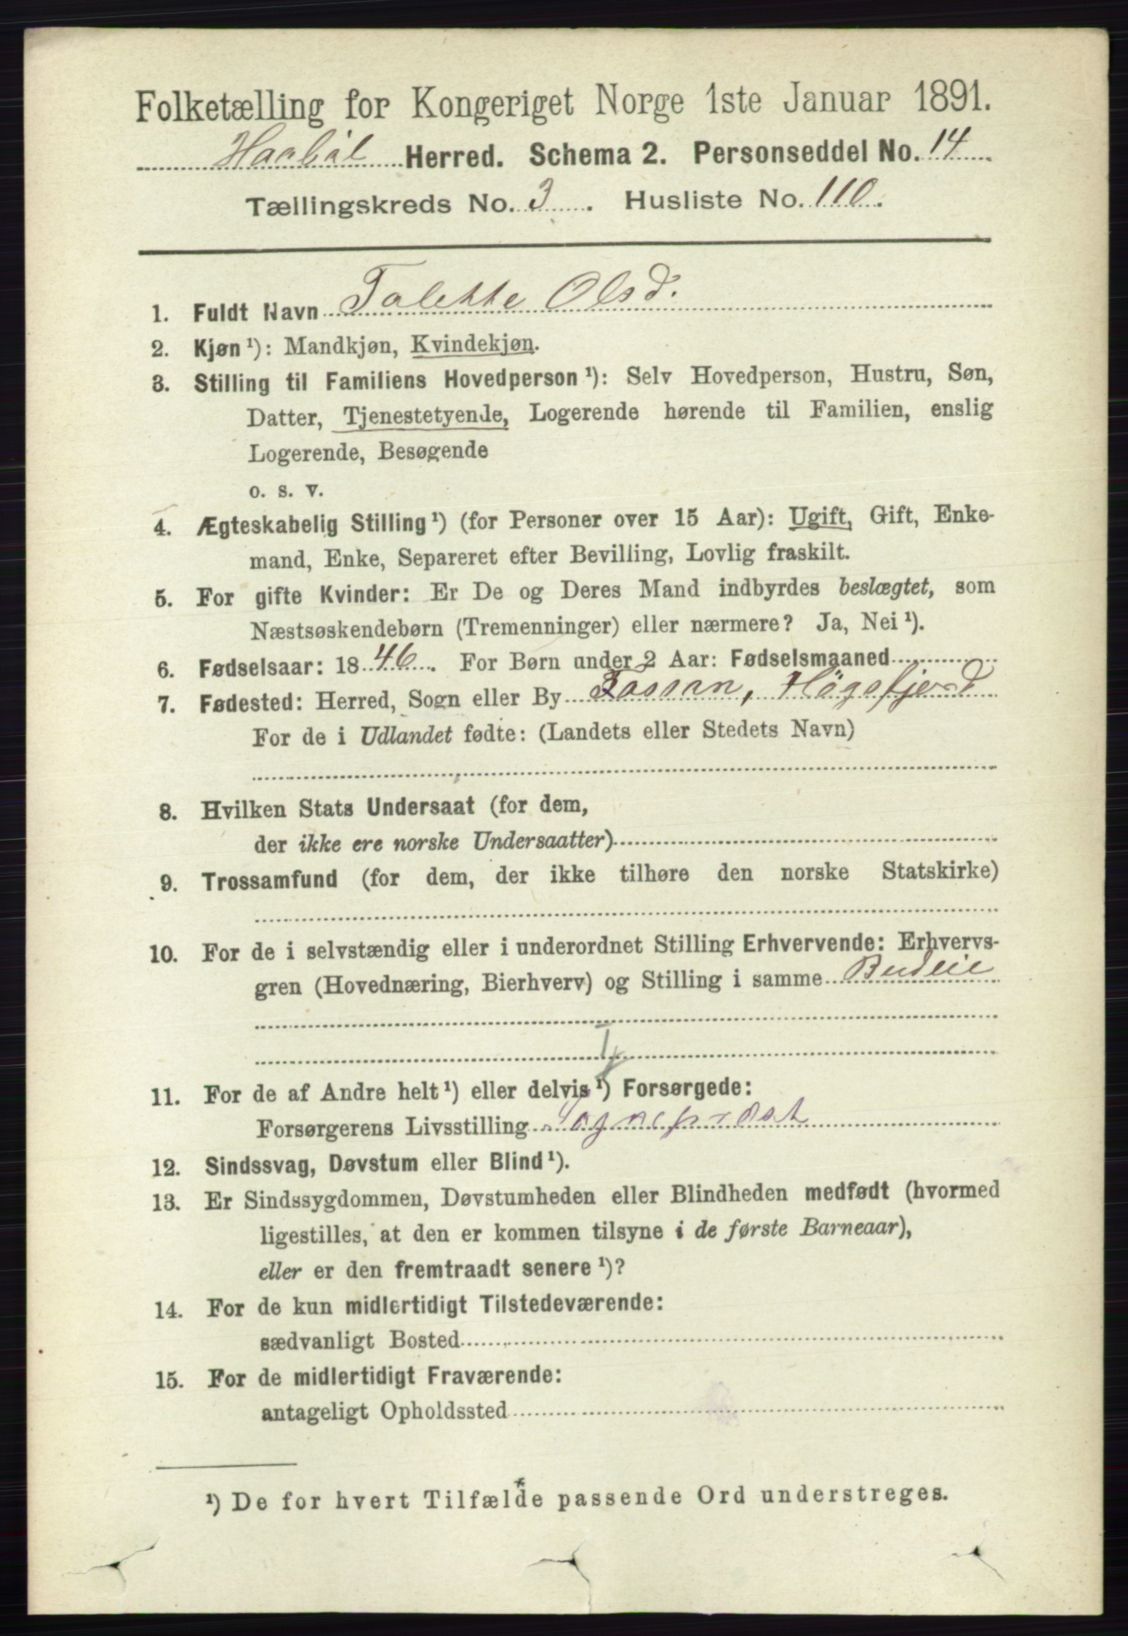 Folketælling for Kongeriget Norge 1ste Januar 1891.
Haabøl Herred. Schema 2. Personseddel No. 14
Tællingskreds No. 3. Husliste No. 110.
1. Fuldt Navn Talette Olsd.
2. Kjøn ¹): Mandkjøn, Kvindekjøn.
3. Stilling til Familiens Hovedperson ¹): Selv Hovedperson, Hustru, Søn,
Datter, Tjenestetyende, Logerende hørende til Familien, enslig
Logerende, Besøgende
o. s. v.
4. Ægteskabelig Stilling ¹) (for Personer over 15 Aar): Ugift, Gift, Enke-
mand, Enke, Separeret efter Bevilling, Lovlig fraskilt.
5. For gifte Kvinder: Er De og Deres Mand indbyrdes beslægtet, som
Næstsøskendebørn (Tremenninger) eller nærmere? Ja, Nei ¹).
6. Fødselsaar: 1846. For Børn under 2 Aar: Fødselsmaaned
7. Fødested: Herred, Sogn eller By Fossan, Høgsfjord
For de i Udlandet fødte: (Landets eller Stedets Navn)
8. Hvilken Stats Undersaat (for dem,
der ikke ere norske Undersaatter)
9. Trossamfund (for dem, der ikke tilhøre den norske Statskirke)
10. For de i selvstændig eller i underordnet Stilling Erhvervende: Erhvervs-
gren (Hovednæring, Bierhverv) og Stilling i samme Budeie
11. For de af Andre helt ¹) eller delvis ¹) Forsørgede:
Forsørgerens Livsstilling Sogneprest
12. Sindssvag, Døvstum eller Blind ¹).
13. Er Sindssygdommen, Døvstumheden eller Blindheden medfødt (hvormed
ligestilles, at den er kommen tilsyne i de første Barneaar),
eller er den fremtraadt senere ¹)?
14. For de kun midlertidigt Tilstedeværende:
sædvanligt Bosted
15. For de midlertidigt Fraværende:
antageligt Opholdssted
¹) De for hvert Tilfælde passende Ord understreges.